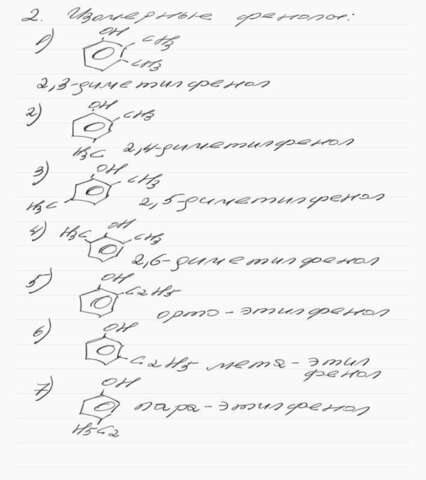 2. Изомерные фенолы:
1)
OH
CH3
CH3
2,3-диметилфенол
2)
OH
CH3
H3C
2,4-диметилфенол
3)
OH
CH3
H3C
2,5-диметилфенол
4)
H3C
OH
CH3
2,6-диметилфенол
5)
OH
C2H5
орто-этилфенол
6)
OH
C2H5
мета-этил
фенол
7)
OH
пара-этилфенол
H5C2